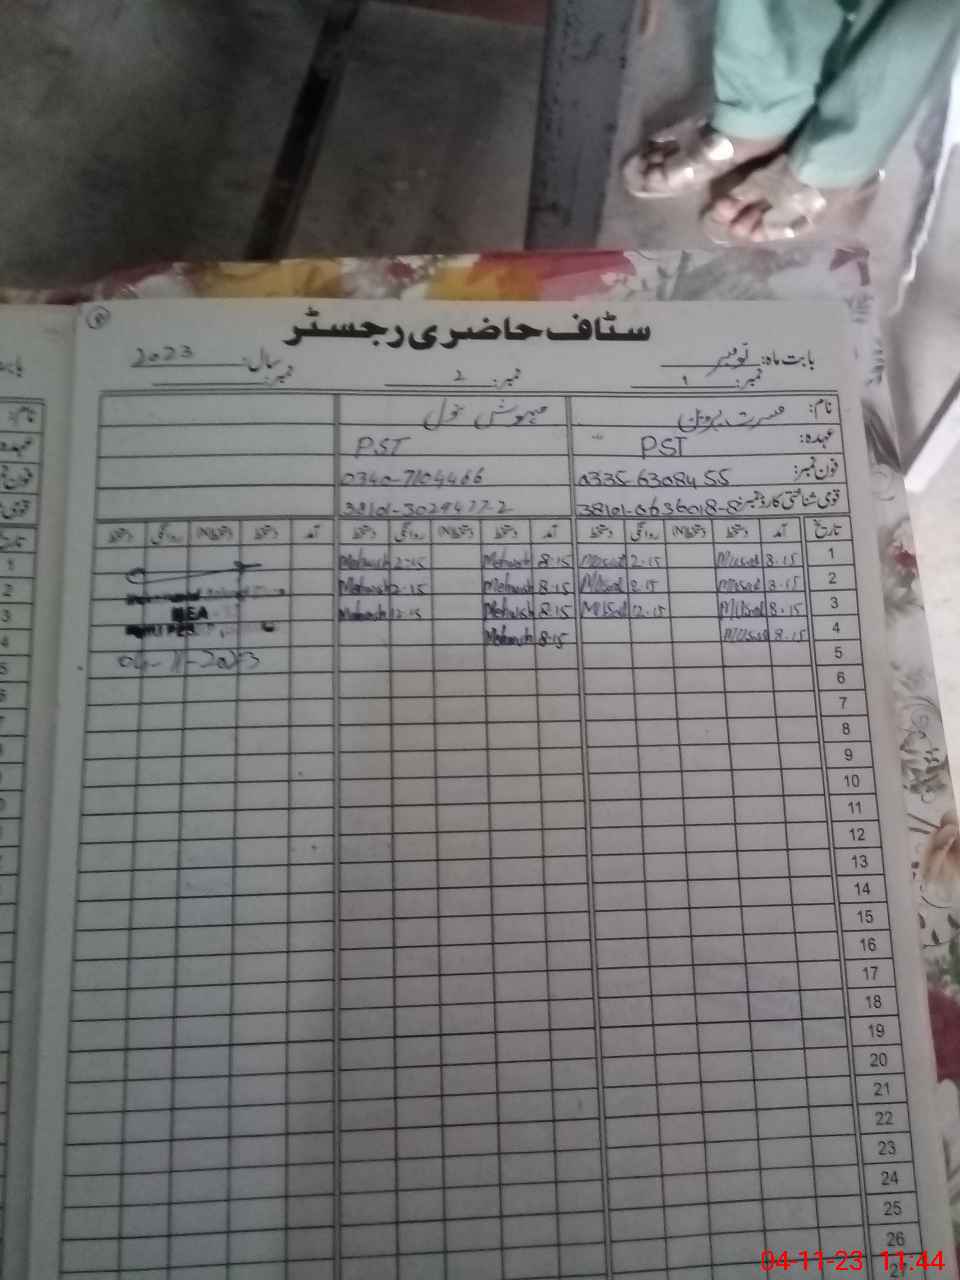 سٹاف حاضری رجسٹر
بابت ماہ: نومبر سال: 2023
نمبر: 1 نمبر: 2 نمبر:
نام: مسرت پروین مہوش بتول
عہدہ: PST PST
فون نمبر: 0335-6308455 0340-7104466
قومی شناختی کارڈ نمبر: 38101-0636018-8 38101-3029477-2
تاریخ آمد دستخط دستخط(N) روانگی دستخط آمد دستخط دستخط(N) روانگی دستخط آمد دستخط دستخط(N) روانگی دستخط
1 8:15 Musrat 2:15 Musrat 8:15 Mehwish 2:15 Mehwish
2 8:15 Musrat 2:15 Musrat 8:15 Mehwish 2:15 Mehwish
3 8:15 Musrat 12:15 Musrat 8:15 Mehwish 12:15 Mehwish
4 8:15 Musrat 8:15 Mehwish
MEA
04-11-2023
5
6
7
8
9
10
11
12
13
14
15
16
17
18
19
20
21
22
23
24
25
26
27
04-11-23 11:44